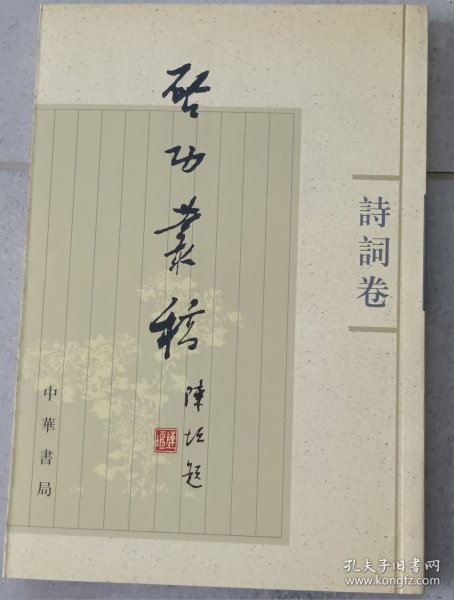 啓功叢稿
陳垣題
詩詞卷
中華書局
孔夫子旧书网
www.kongfz.com